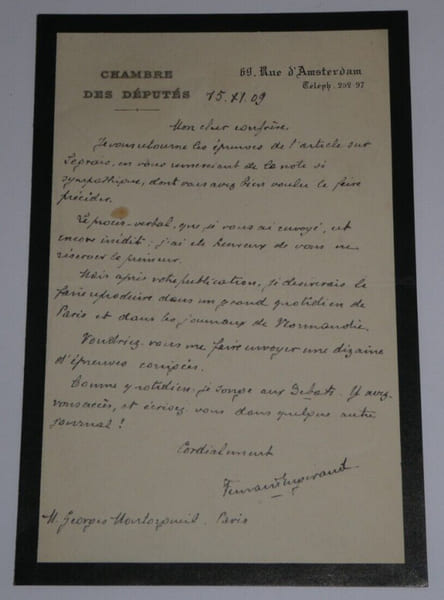 CHAMBRE
DES DÉPUTÉS
69. Rue d'Amsterdam
Téleph. 252-97
15. XI. 09
Mon cher confrère,
Je vous retourne les épreuves de l'article sur
Segrais, en vous remerciant de la note si
sympathique, dont vous avez bien voulu le faire
précéder.
Le procès-verbal, que je vous ai envoyé, est
encore inédit ; j'ai été heureux de vous en
réserver la primeur.
Mais après votre publication, je désirerais le
faire reproduire dans un grand quotidien de
Paris et dans les journaux de Normandie.
Voudriez-vous me faire envoyer une dizaine
d'épreuves corrigées.
Comme quotidien, je songe aux Débats. Y avez-
vous accès, et écrivez-vous dans quelque autre
journal ?
Cordialement
Fernand Engerand
M. Georges Montorgueil. Paris